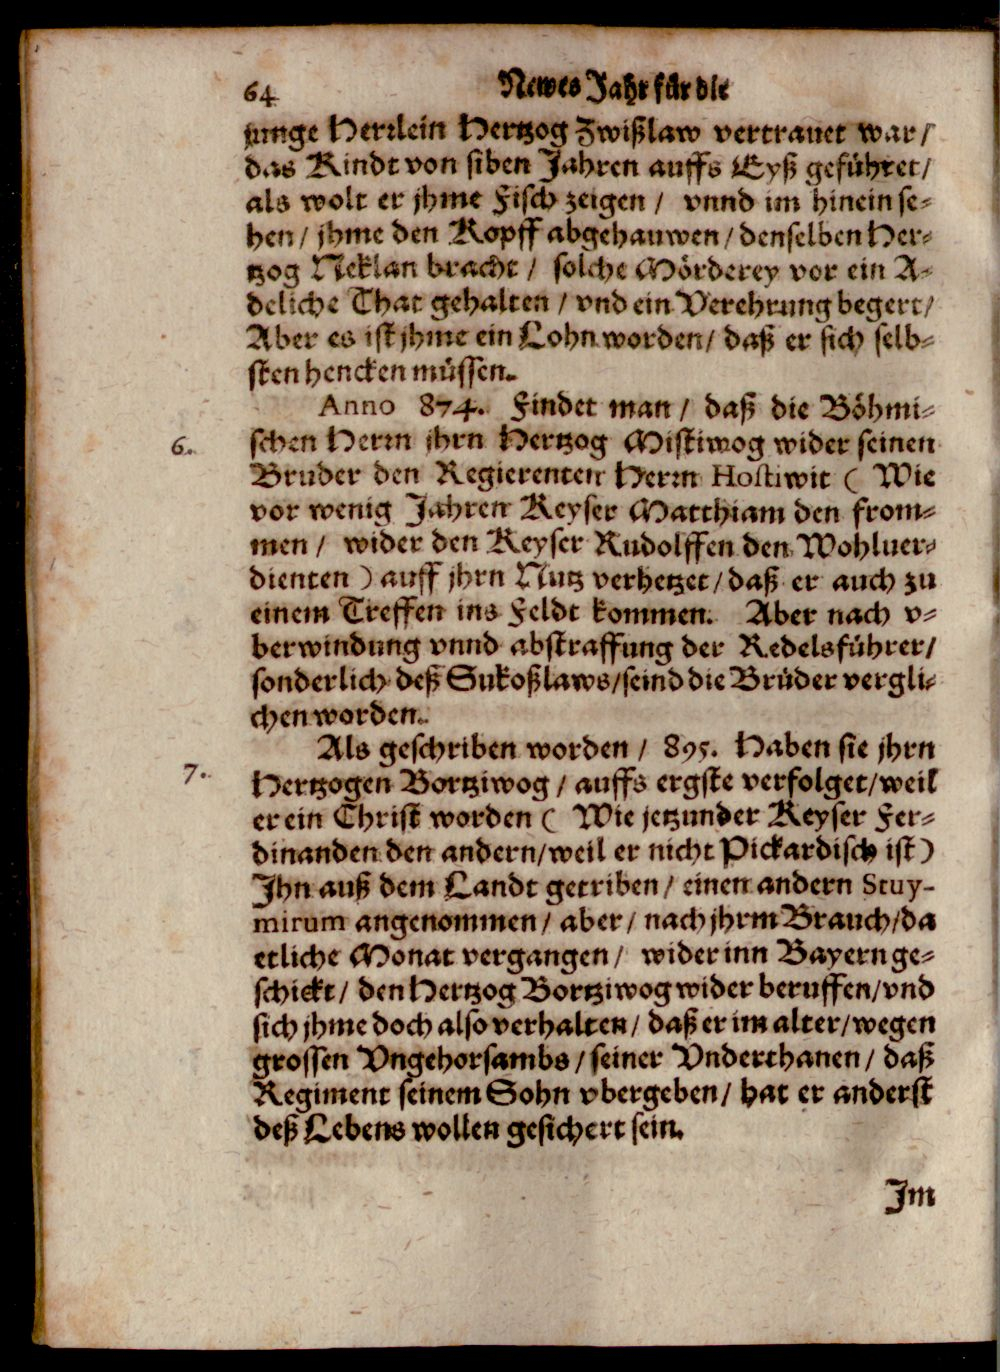 64 Newes Jahr für die
junge Herrlein Hertzog Zwißlaw vertrauet war /
das Kindt von siben Jahren auffs Eyß geführet /
als wolt er jhme Fisch zeigen / vnnd im hinein se-
hen / jhme den Kopff abgehauwen / denselben Her-
tzog Neklan bracht / solche Mörderey vor ein A-
deliche That gehalten / vnd ein Verehrung begert /
Aber es ist jhme ein Lohn worden / daß er sich selb-
sten hencken müssen.
Anno 874. Findet man / daß die Böhmi-
6. schen Herrn jhrn Hertzog Mistiwog wider seinen
Bruder den Regierenten Herrn Hostiwit ( Wie
vor wenig Jahren Keyser Matthiam den from-
men / wider den Keyser Rudolffen den Wohluer-
dienten ) auff jhrn Nutz verhetzet / daß er auch zu
einem Treffen ins Feldt kommen. Aber nach v-
berwindung vnnd abstraffung der Redelsführer /
sonderlich deß Sukoßlaws / seind die Brüder vergli-
chen worden.
Als geschriben worden / 895. Haben sie jhrn
7. Hertzogen Bortziwog / auffs ergste verfolget / weil
er ein Christ worden ( Wie jetzunder Keyser Fer-
dinanden den andern / weil er nicht Pickardisch ist )
Jhn auß dem Landt getriben / einen andern Stuy-
mirum angenommen / aber / nach jhrm Brauch / da
etliche Monat vergangen / wider inn Bayern ge-
schickt / den Hertzog Bortziwog wider beruffen / vnd
sich jhme doch also verhalten / daß er im alter / wegen
grossen Vngehorsambs / seiner Vnderthanen / daß
Regiment seinem Sohn vbergeben / hat er anderst
deß Lebens wollen gesichert sein.
Jm